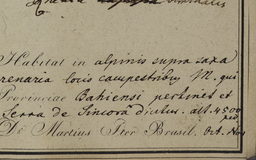 Habitat in alpinis supra saxa
renaria locis campestribus M. qui
Provinciae Bahiensi pertinet et
Serra de Sincorá dictus. alt. 4500
ped.
De Martius Iter Brasil. Oct. Nov